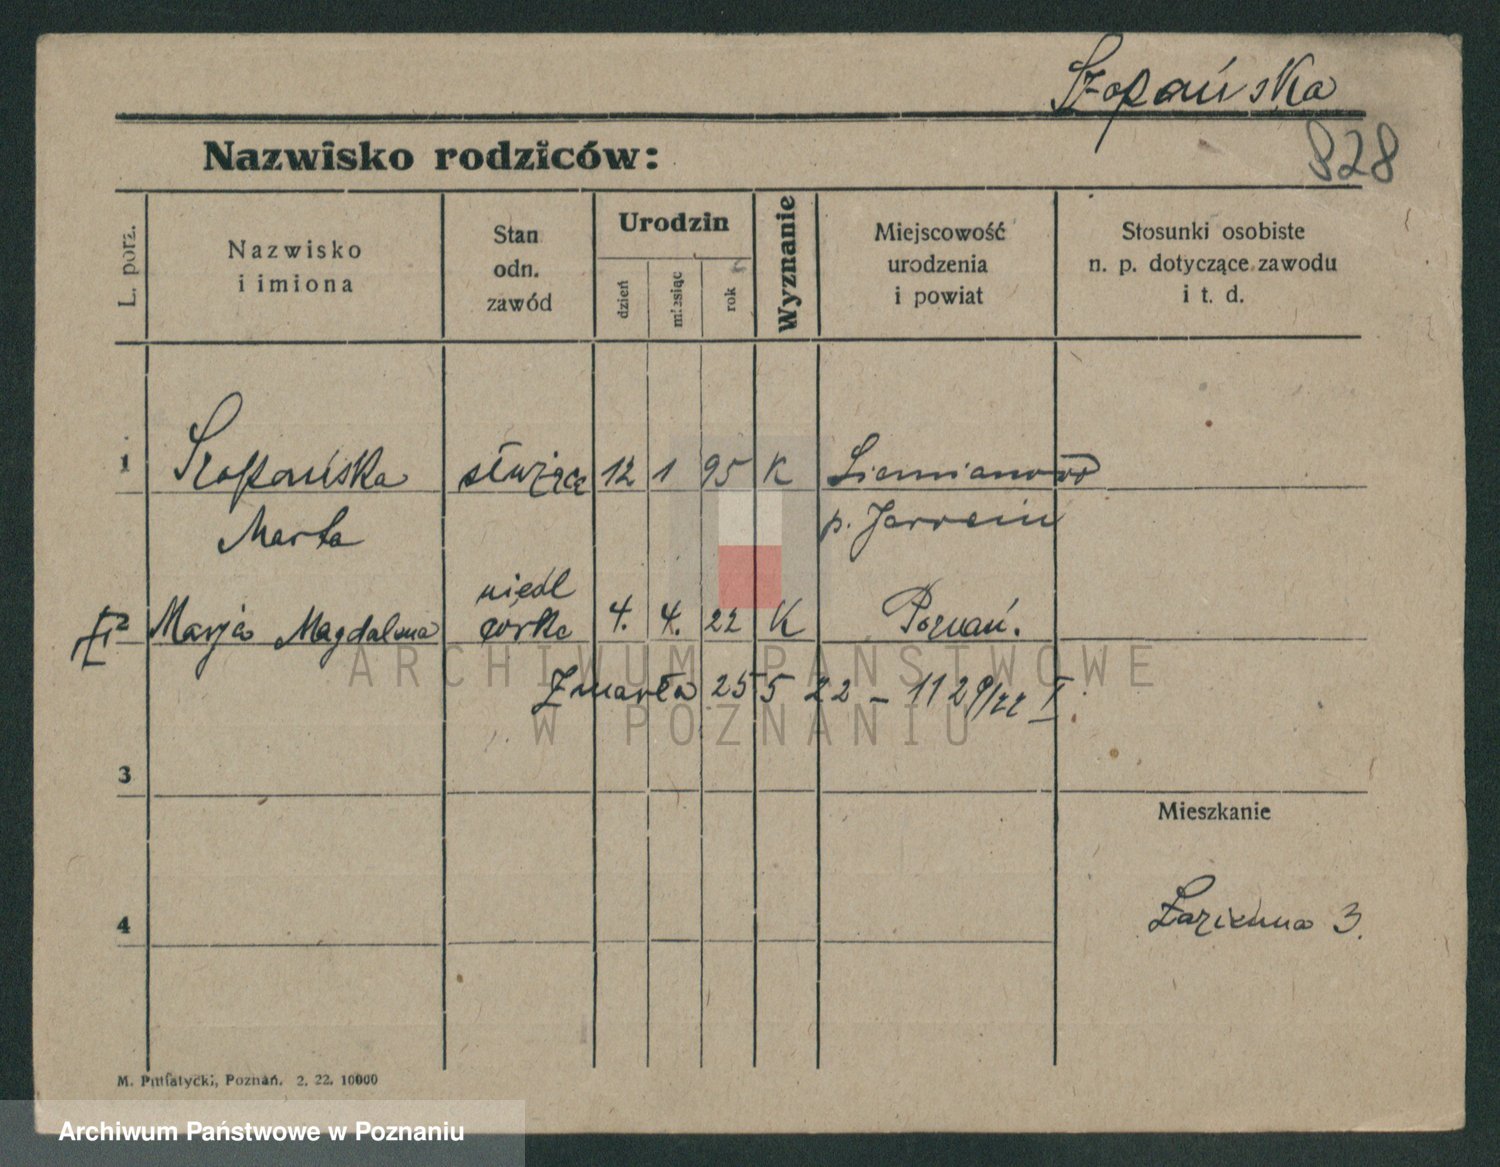 Szopańska
828
Nazwisko rodziców:
L. porz.
Nazwisko
i imiona
Stan
odn.
zawód
Urodzin
dzień
miesiąc
rok
Wyznanie
Miejscowość
urodzenia
i powiat
Stosunki osobiste
n. p. dotyczące zawodu
i t. d.
1 Szopańska służąca 12 1 95 K
Marta p.
nieśl
2 Marja Magdalena córka 4. 4. 22 K Poznań.
Zmarła 25 5 22 – 1129/22 I
3
Mieszkanie
4
Łazienna 3.
M. Putiatycki, Poznań. 2. 22. 10000
ARCHIWUM PAŃSTWOWE
W POZNANIU
Archiwum Państwowe w Poznaniu